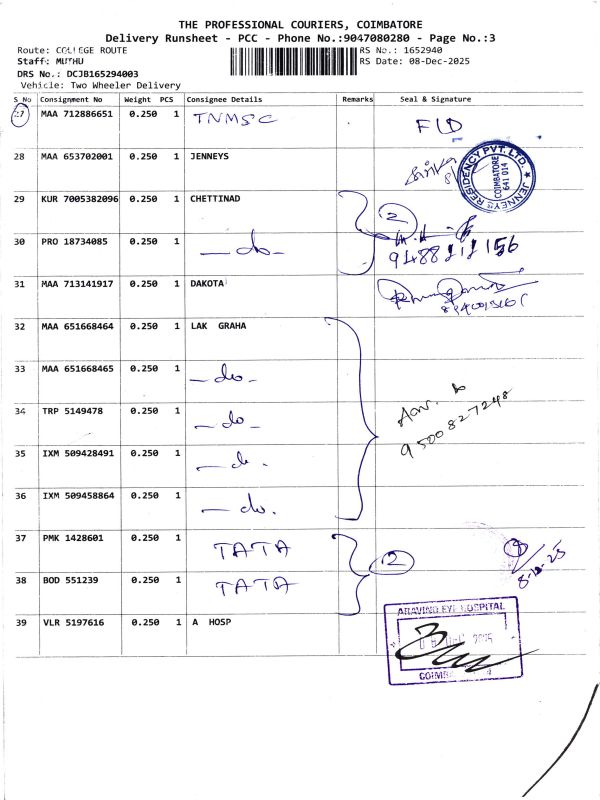 THE PROFESSIONAL COURIERS, COIMBATORE
Delivery Runsheet - PCC - Phone No.:9047080280 - Page No.:3
Route: COLLEGE ROUTE RS No.: 1652940
Staff: MUTHU RS Date: 08-Dec-2025
DRS No.: DCJB165294003
Vehicle: Two Wheeler Delivery
S No Consignment No Weight PCS Consignee Details Remarks Seal & Signature
27 MAA 712886651 0.250 1 TNMSC FID
28 MAA 653702001 0.250 1 JENNEYS
JENNEYS RESIDENCY PVT. LTD. COIMBATORE 641 014
29 KUR 7005382096 0.250 1 CHETTINAD 2
30 PRO 18734085 0.250 1 - do -
31 MAA 713141917 0.250 1 DAKOTA
32 MAA 651668464 0.250 1 LAK GRAHA
33 MAA 651668465 0.250 1 - do -
34 TRP 5149478 0.250 1 - do -
9500827248
35 IXM 509428491 0.250 1 - do -
36 IXM 509458864 0.250 1 - do -
37 PMK 1428601 0.250 1 TATA 2
38 BOD 551239 0.250 1 TATA 8-12-25
39 VLR 5197616 0.250 1 A HOSP
ARAVIND EYE HOSPITAL